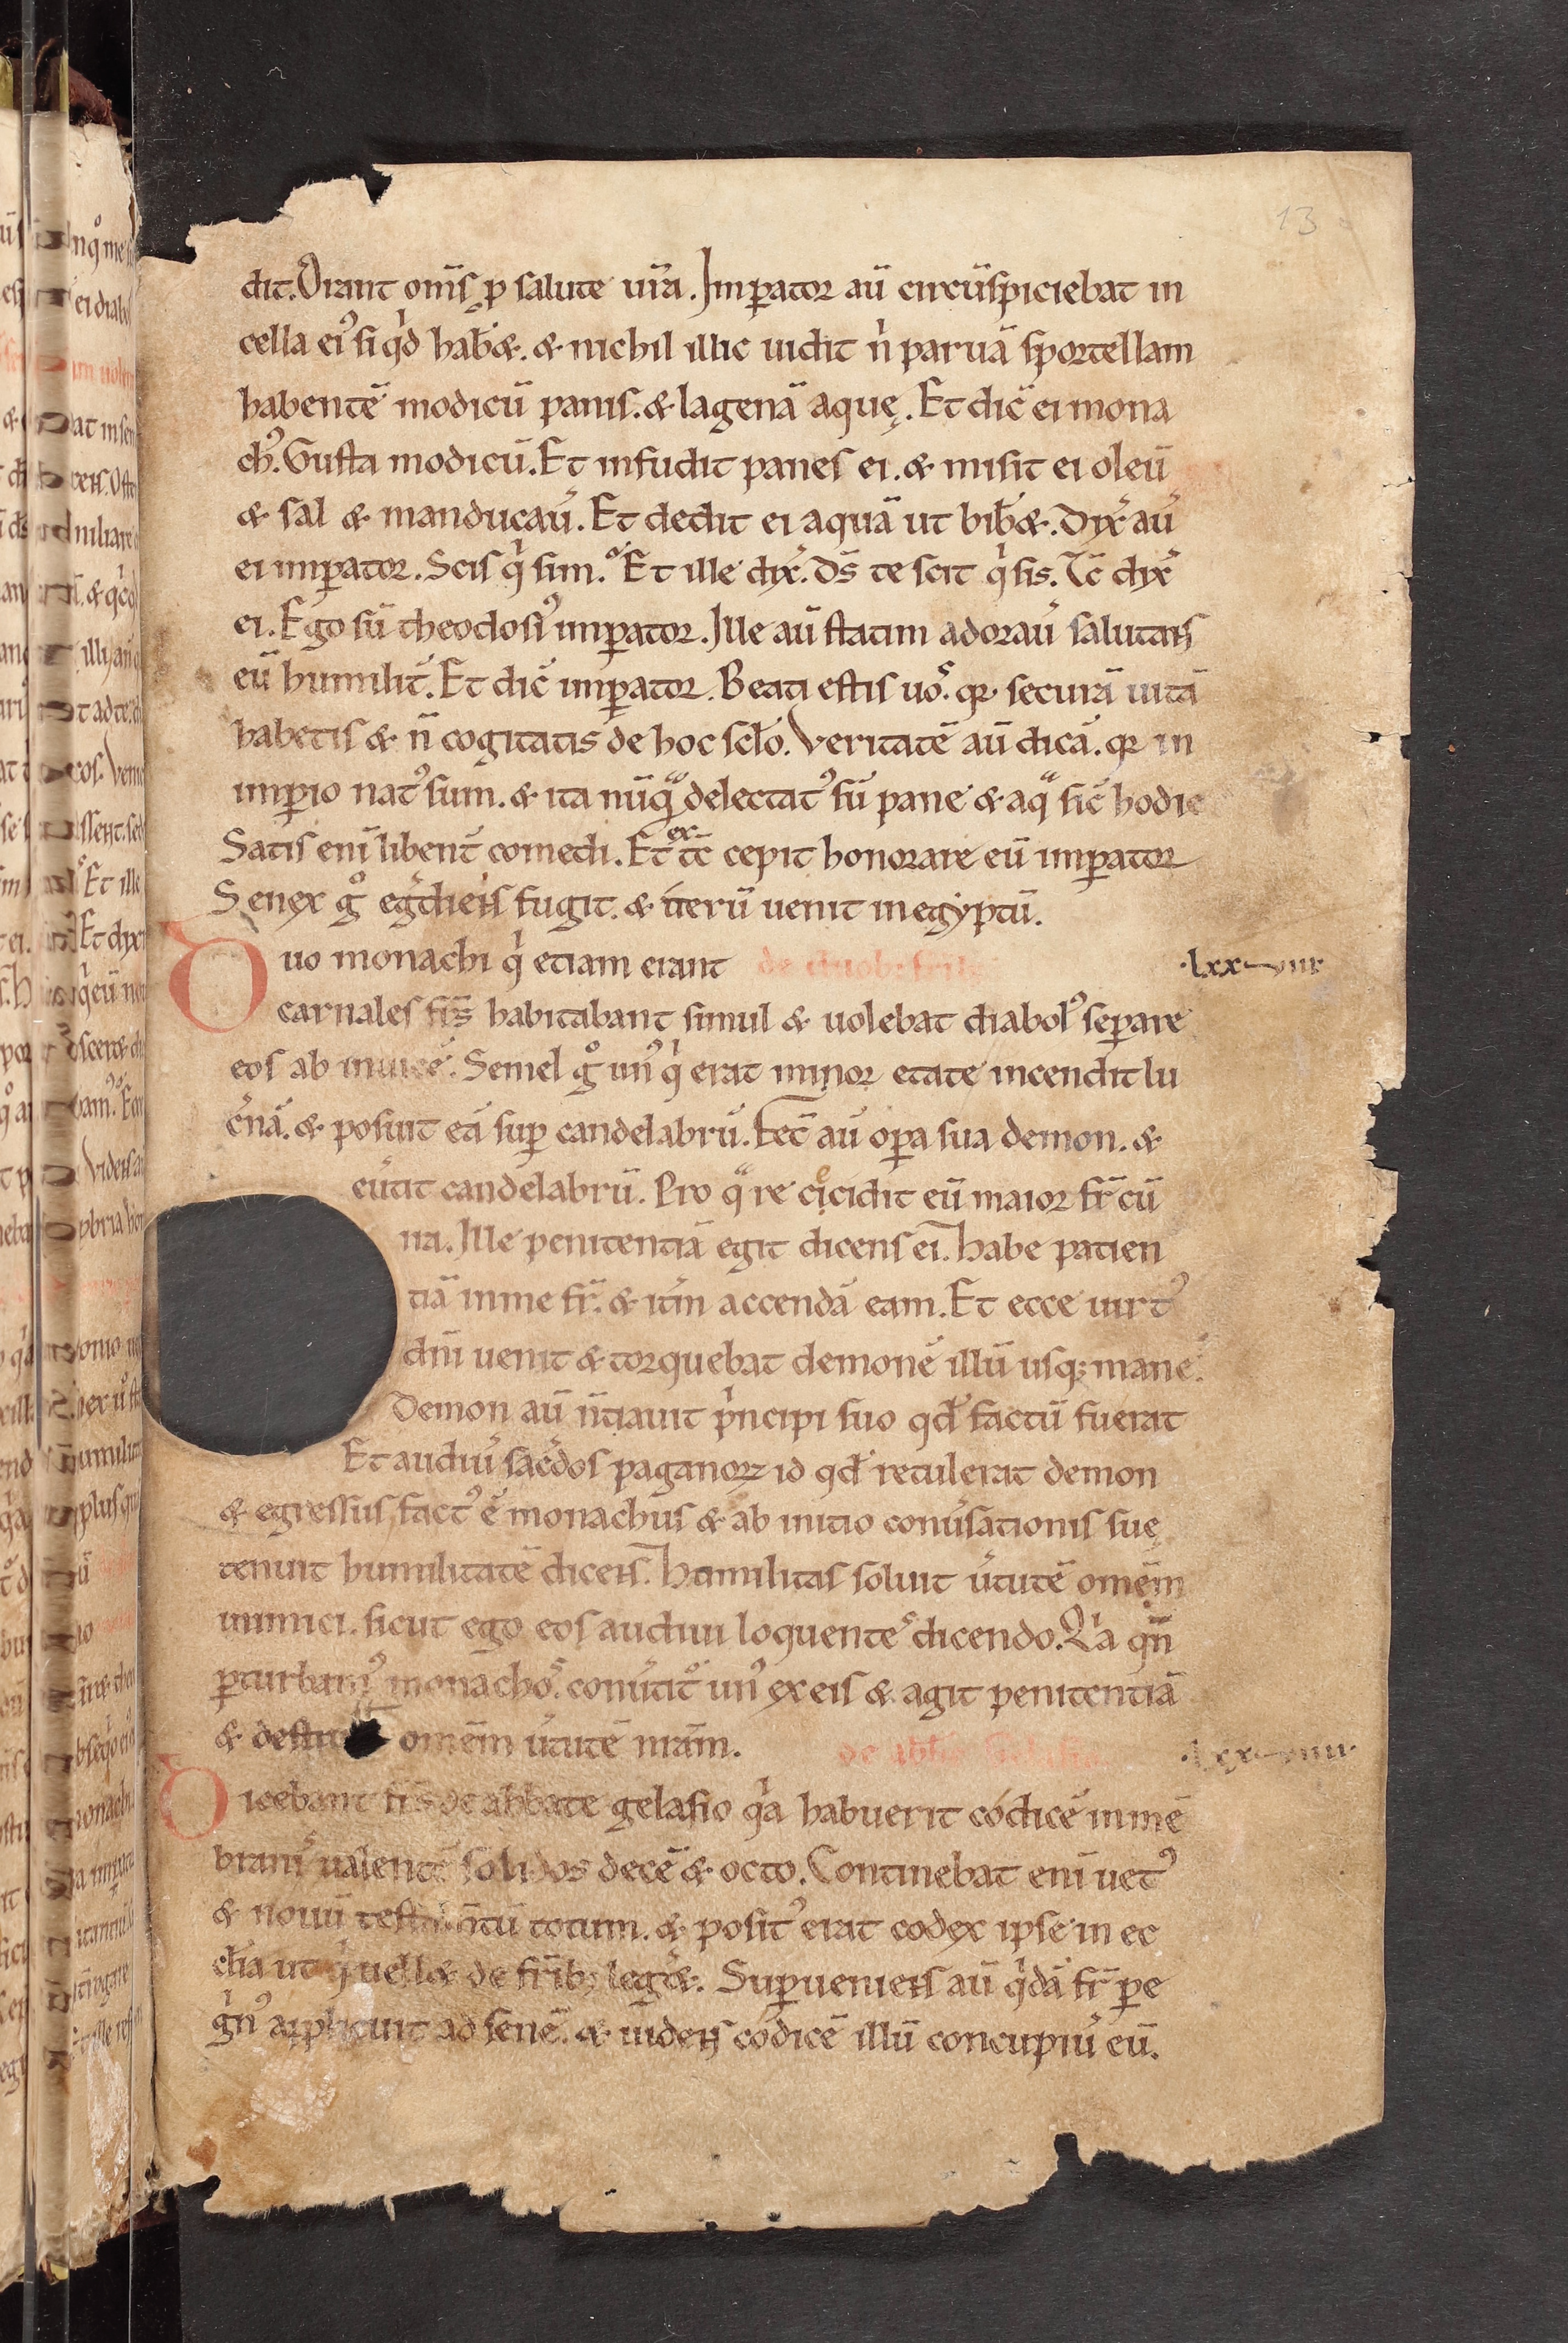 13
dit. Orant om̄s ꝓ salute ur̄a. Imꝑator aū circūspiciebat in
cella ei᾿ si qͥd hab&. & nichil illic uidit nͥ paruā sportellam
habentē modicū panis. & lagenā aquę. Et dic̄ ei mona
ch᾿. Gusta modicū. Et infudit panes ei. & misit ei oleū
& sal & manducau̓. Et dedit ei aquā ut bib&. Dix̓ au̓
ei imꝑator. Scis qͥ sim. Et ille dix̓. Ds̄ te scit qͥ sis. Tc̄ dix̓
ei. Ego sū theodosi᾿ imꝑator. Ille aū statim adorau̓ salutans
eū humilit̓. Et dic̄ imꝑator. Beati estis uoˢ. qꝛ securā uitā
habetis & n̄ cogitatis de hoc scl̄o. Veritatē aū dicā. qꝛ in
imꝑio nat᾿ sum. & ita nūqᵃ delectat᾿ sū pane & aqᵃ sic̄ hodie
Satis eni̅ libent̓ comedi. Et ex tc̄ cepit honorare eū imꝑator
Senex gͦ eg̓diens fugit. & iterū uenit in egyptū.
Duo monachi qͥ etiam erant de duob; frib;
.lxx-viii.
carnales fr̄s habitabant simul & uolebat diabol᾿ seꝑare
eos ab inuicē. Semel gͦ un᾿ qͥ erat minor etate incendit lu
c̓nā. & posuit eā suꝑ candelabrū. Fec̄ aū oꝑa sua demon. &
eu̓tit candelabrū. Pro qᵃ re cicidit eū maior fr̄ cū
ira. Ille penitentiā egit dicens ei. habe patien
tiā in me fr̄. & itm̄ accendā eam. Et ecce uirt᾿
dn̄i uenit & torquebat demonē illū usq; mane.
Demon aū n̄tiauit pͥncipi suo qd̄ factū fuerat
Et audiu̓ sac̓dos paganoꝝ id qd̄ retulerat demon
& egressus fact᾿ ē monachus & ab initio conu̓sationis suę
tenuit humilitatē dicens. Humilitas soluit u̓tutē omēm
inimici. sicut ego eos audiui loquenteˢ dicendo. Qͥa qn̄
ꝑturbam᾿ monachoˢ. conu̓titͬ un᾿ ex eis & agit penitentiā
& destit omēm u̓tutē nr̄am. de abbe Gelasio
.lxx-viiii.
Dicebant fr̄s de abbate gelasio qͥa habuerit codicē in mē
branis ualentē solidos decē & octo. Continebat eni̅ uet᾿
& nouū testam̄tū totum. & posit᾿ erat codex ipse in ec
cl̄ia ut qͥ uell& de fr̄ib; leg̓&. Suꝑueniens aū qͥdā fr̄ ꝑe
gͥn᾿ applicuit ad senē. & uidens codicē illū concupiu̓ eū.